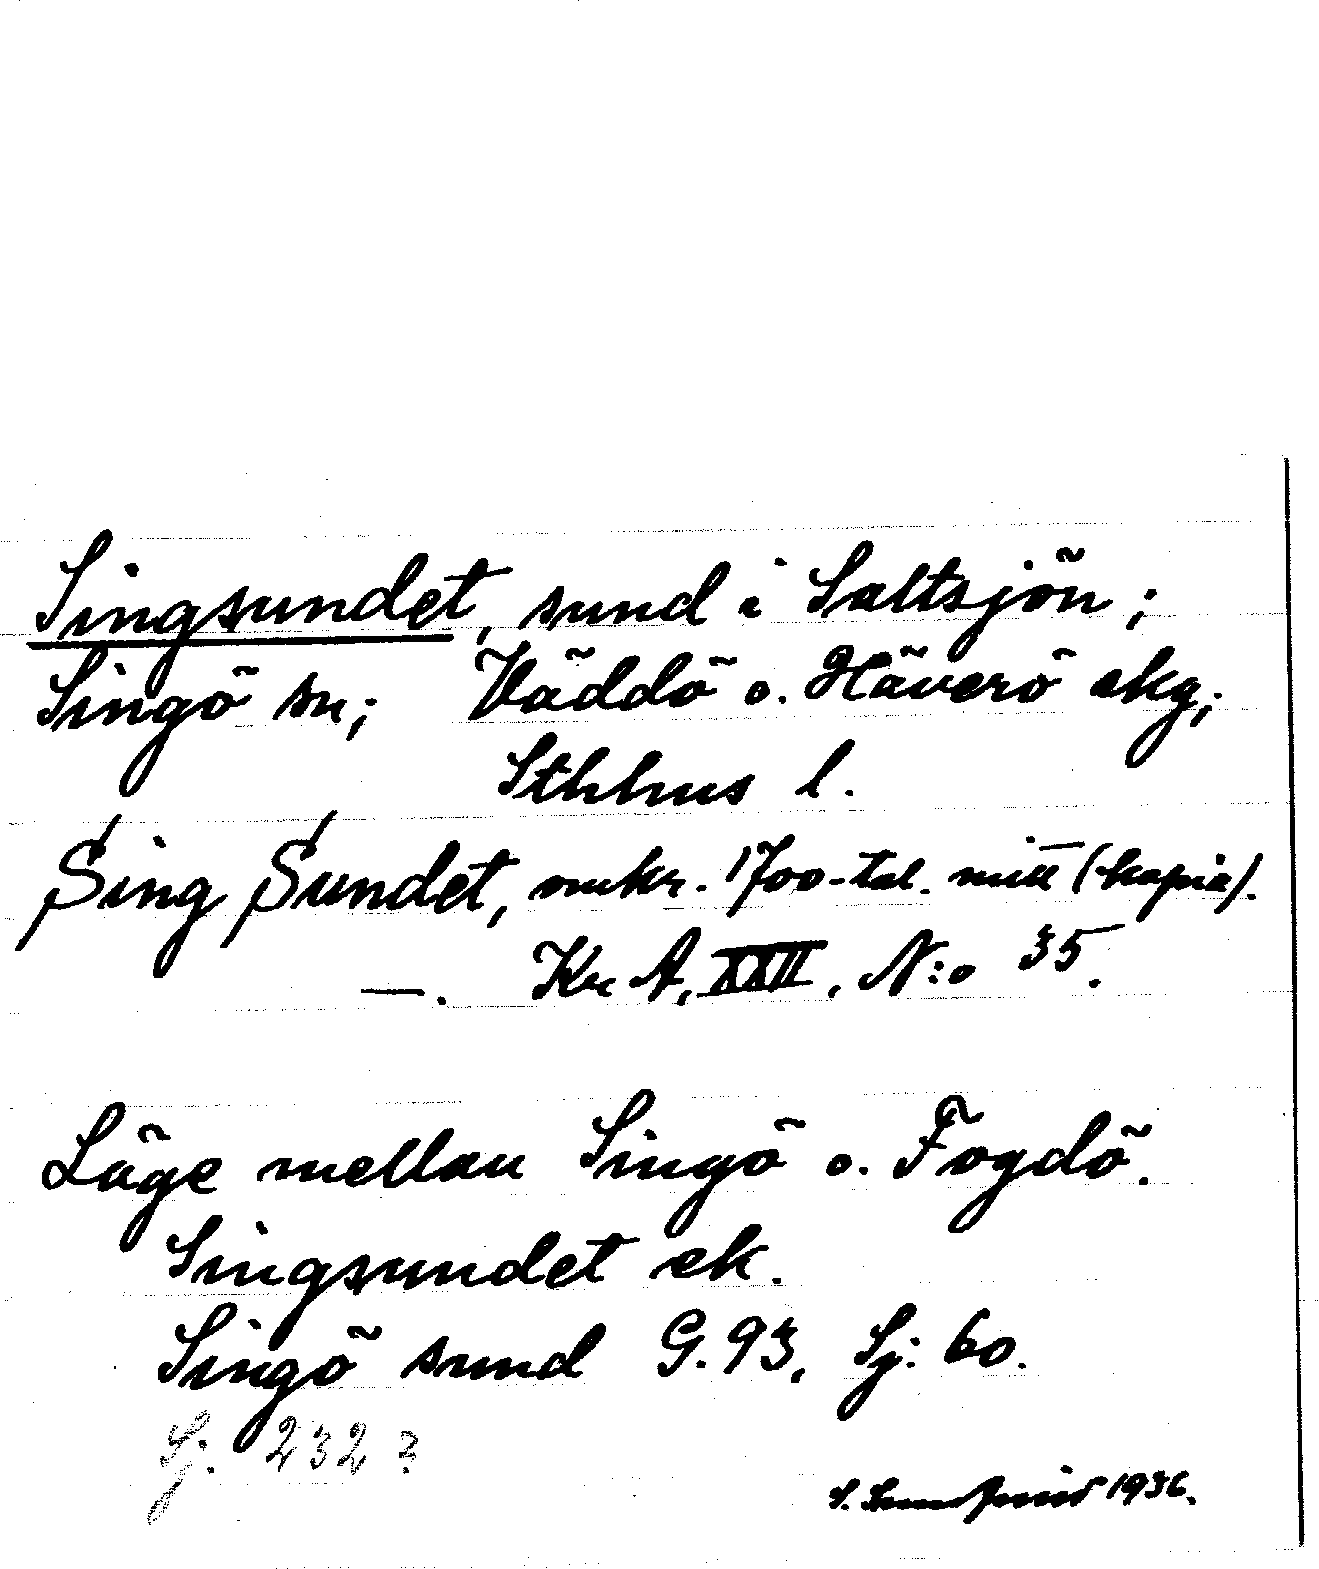 Singsundet, sund i Saltsjön;
Singö sn; Väddö o. Häverö skg;
Sthlms l.
Sing Sundet, omkr. 1700-tal. mitt (kopia).
—. Kr A, XXII, N:o 35.
Läge mellan Singö o. Fogdö.
Singsundet ek.
Singö sund G. 93, Sj: 60.
Sj. 232?
S. 1936.